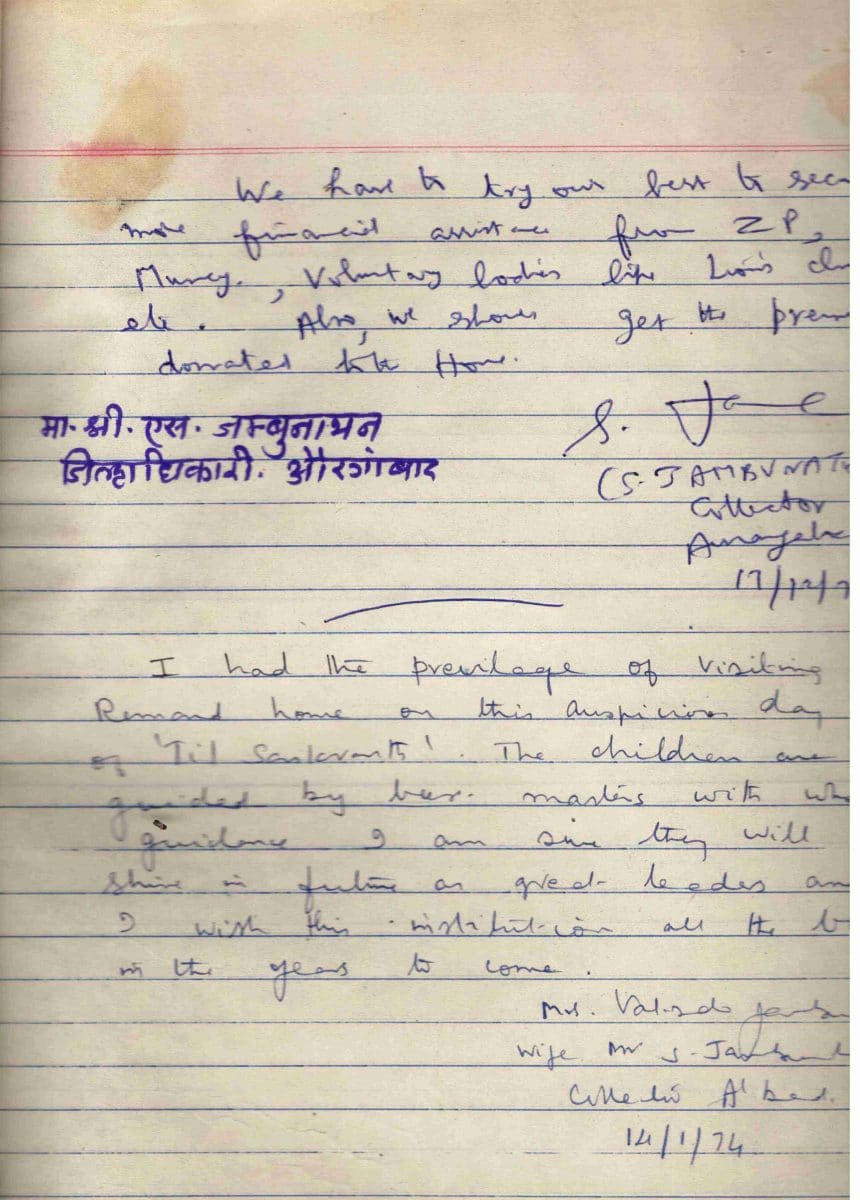 We have to try our best to sec
more financial assistance from ZP,
Muncy., Voluntary bodies like Lion's clu
etc. Also, we should get the prem
donated to the Home.
मा. श्री. एस. जम्बुनाथन
जिल्हाधिकारी. औरंगाबाद
S. Jam
(S. JAMBUNATH
Collector
Aurangaba
17/12/7
I had the previlage of visiting
Remand home on this auspicious day
of 'Til Sankranti'. The children are
guided by masters with wh
guidance I am sure they will
shine in future as great leades an
I wish this institution all the b
in the years to come.
Mrs. Jambu
Wife Mr S. Jambun
Collector A'bad.
14/1/74